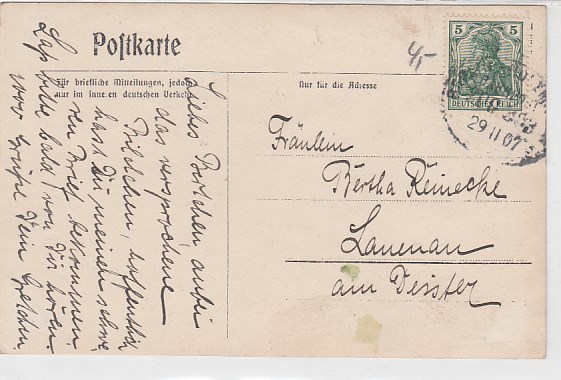 Postkarte
Für briefliche Mitteilungen, jedoch
nur im inneren deutschen Verkehr
Nur für die Adresse
4,-
5 5
DEUTSCHES REICH
29 11 07
Fräulein
Bertha Reinecke
Lauenau
am Deister
Liebes Berthchen, anbei
das versprochene
Bildchen, hoffentlich
hast Du meinen schwe
ren Brief bekommen.
Laß bitte bald von Dir hören.
Grüße Dein Gretchen